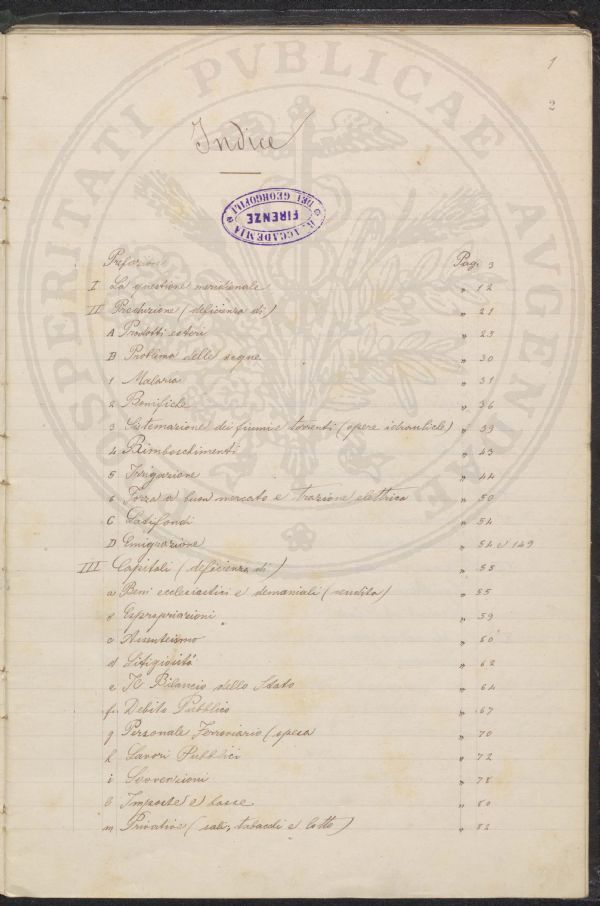 1
2
PROSPERITATI PUBLICAE AUGENDAE
Indice
R. ACCADEMIA
DEI GEORGOFILI
FIRENZE
Prefazione Pag. 3
I La questione meridionale " 12
II Produzione (deficienza di) " 21
A Prodotti esteri " 23
B Problema delle acque " 30
1 Malaria " 31
2 Bonifiche " 36
3 Sistemazione dei fiumi e torrenti (opere idrauliche) " 39
4 Rimboschimenti " 43
5 Irrigazione " 44
6 Forza a buon mercato e trazione elettrica " 50
C Latifondi " 54
D Emigrazione " 54 e 149
III Capitali (deficienza di) " 55
a Beni ecclesiastici e demaniali (vendita) " 55
b Espropriazioni " 59
c Assenteismo " 60
d Litigiosità " 62
e Il Bilancio dello Stato " 64
f Debito Pubblico " 67
g Personale Ferroviario (spesa " 70
h Lavori Pubblici " 72
i Sovvenzioni " 78
l Imposte e tasse " 80
m Privative (sali, tabacchi e lotto) " 82